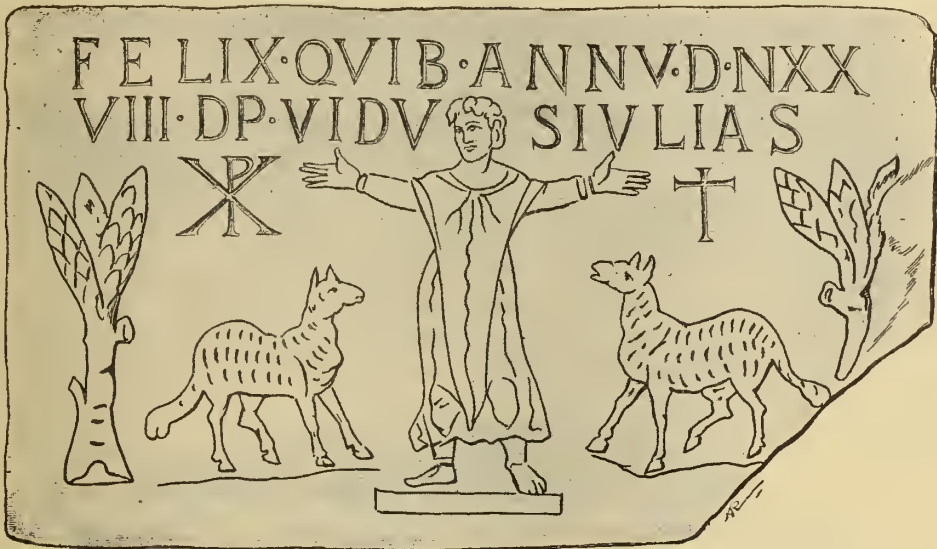 FELIX·QVIB·ANNV·D·NXX
VIII·DP·VIDV SIVLIAS